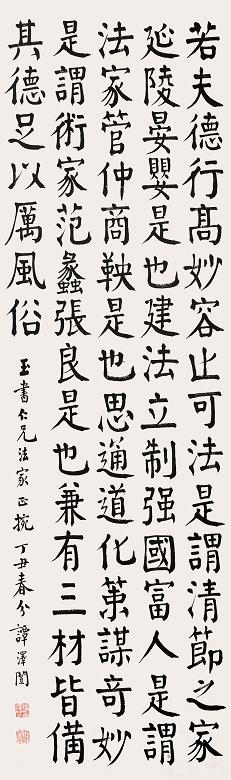 若夫德行髙妙容止可法是謂清節之家
延陵晏嬰是也建法立制强國富人是謂
法家管仲商鞅是也思通道化策謀奇妙
是謂術家范蠡張良是也兼有三材皆備
其德足以厲風俗
玉書仁兄法家正捥 丁丑春分 譚澤闓